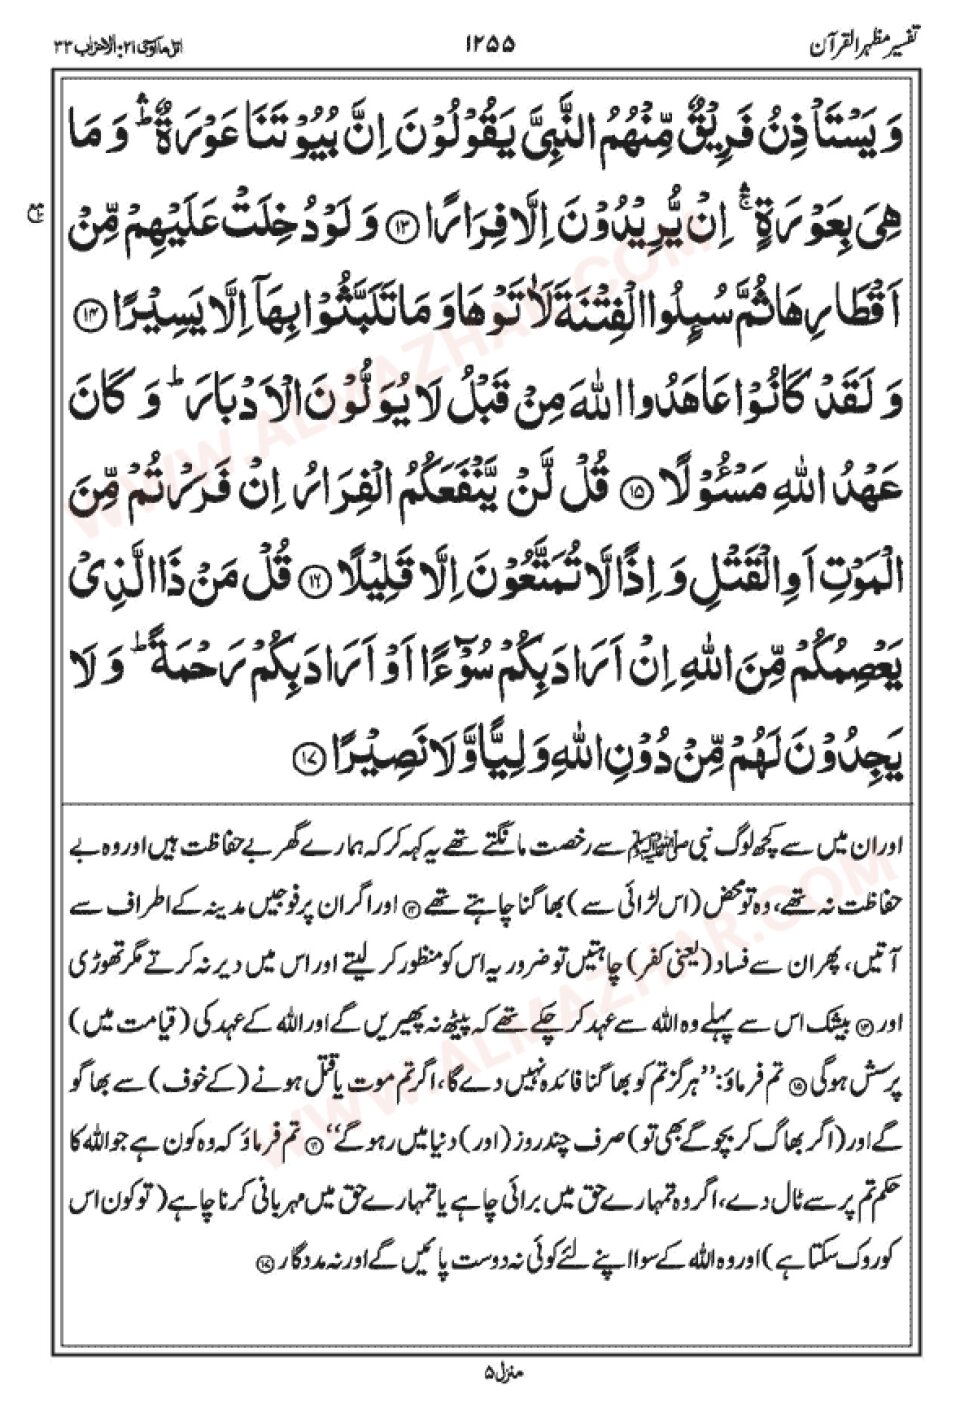 تفسیر مظہر القرآن
۱۲۵۵
اتل ما اوحی ۲۱: الاحزاب ۳۳
وَيَسْتَأْذِنُ فَرِيْقٌ مِّنْهُمُ النَّبِيَّ يَقُوْلُوْنَ اِنَّ بُيُوْتَنَا عَوْرَةٌ ۛؕ وَمَا
هِيَ بِعَوْرَةٍ ۛۚ اِنْ يُّرِيْدُوْنَ اِلَّا فِرَارًا ﴿۱۳﴾ وَلَوْ دُخِلَتْ عَلَيْهِمْ مِّنْ
اَقْطَارِهَا ثُمَّ سُىِٕلُوا الْفِتْنَةَ لَاٰتَوْهَا وَمَا تَلَبَّثُوْا بِهَاۤ اِلَّا يَسِيْرًا ﴿۱۴﴾
وَلَقَدْ كَانُوْا عَاهَدُوا اللهَ مِنْ قَبْلُ لَا يُوَلُّوْنَ الْاَدْبَارَ ؕ وَكَانَ
عَهْدُ اللهِ مَسْـُٔوْلًا ﴿۱۵﴾ قُلْ لَّنْ يَّنْفَعَكُمُ الْفِرَارُ اِنْ فَرَرْتُمْ مِّنَ
الْمَوْتِ اَوِ الْقَتْلِ وَاِذًا لَّا تُمَتَّعُوْنَ اِلَّا قَلِيْلًا ﴿۱۶﴾ قُلْ مَنْ ذَا الَّذِيْ
يَعْصِمُكُمْ مِّنَ اللهِ اِنْ اَرَادَ بِكُمْ سُوْٓءًا اَوْ اَرَادَ بِكُمْ رَحْمَةً ؕ وَلَا
يَجِدُوْنَ لَهُمْ مِّنْ دُوْنِ اللهِ وَلِيًّا وَّلَا نَصِيْرًا ﴿۱۷﴾
اور ان میں سے کچھ لوگ نبی ﷺ سے رخصت مانگتے تھے یہ کہہ کر کہ ہمارے گھر بے حفاظت ہیں اور وہ بے
حفاظت نہ تھے، وہ تو محض (اس لڑائی سے) بھاگنا چاہتے تھے ﴿۱۳﴾ اور اگر ان پر فوجیں مدینہ کے اطراف سے
آتیں، پھر ان سے فساد (یعنی کفر) چاہتیں تو ضرور یہ اس کو منظور کر لیتے اور اس میں دیر نہ کرتے مگر تھوڑی
اور ﴿۱۴﴾ بیشک اس سے پہلے وہ اللہ سے عہد کر چکے تھے کہ پیٹھ نہ پھیریں گے اور اللہ کے عہد کی (قیامت میں)
پرسش ہوگی ﴿۱۵﴾ تم فرماؤ: ’’ہرگز تم کو بھاگنا فائدہ نہیں دے گا، اگر تم موت یا قتل ہونے (کے خوف) سے بھاگو
گے اور (اگر بھاگ کر بچو گے بھی تو) صرف چند روز (اور) دنیا میں رہو گے‘‘ ﴿۱۶﴾ تم فرماؤ کہ وہ کون ہے جو اللہ کا
حکم تم پر سے ٹال دے، اگر وہ تمہارے حق میں برائی چاہے یا تمہارے حق میں مہربانی کرنا چاہے (تو کون اس
کو روک سکتا ہے) اور وہ اللہ کے سوا اپنے لئے کوئی نہ دوست پائیں گے اور نہ مددگار ﴿۱۷﴾
منزل ۵
WWW.ALMAZHAR.COM
WWW.ALMAZHAR.COM